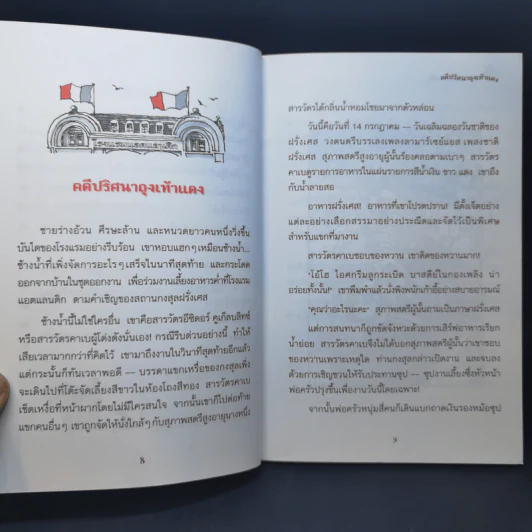 คดีปริศนาถุงเท้าแดง
ชายร่างอ้วน ศีรษะล้าน และหนวดยาวคนหนึ่งวิ่งขึ้น
บันไดของโรงแรมอย่างรีบร้อน เขาหอบแฮกๆ เหมือนช้างน้ำ...
ช้างน้ำที่เพิ่งจัดการอะไรๆ เสร็จในนาทีสุดท้าย และกระโดด
ออกจากบ้านในชุดออกงาน เพื่อร่วมงานเลี้ยงอาหารค่ำที่โรงแรม
แอตแลนติก ตามคำเชิญของสถานกงสุลฝรั่งเศส
ช้างน้ำนี้ไม่ใช่ใครอื่น เขาคือสารวัตรอีซิดอร์
หรือสารวัตรคาเบผู้โด่งดังนั่นเอง! กรณีรีบด่วนอย่างนี้ ทำให้
เสียเวลามากกว่าที่คิดไว้ เขามาถึงงานในวินาทีสุดท้ายอีกแล้ว
แต่กระนั้นก็ทันเวลาพอดี -- บรรดาแขกเหรื่อของกงสุลเพิ่ง
จะเดินไปที่โต๊ะจัดเลี้ยงสีขาวในห้องโถงสีทอง สารวัตรคาเบ
เช็ดเหงื่อที่หน้าผากโดยไม่มีใครสนใจ จากนั้นเขาก็ไปต่อท้าย
แขกคนอื่นๆ เขาถูกจัดให้นั่งใกล้ๆ กับสุภาพสตรีสูงอายุนางหนึ่ง
8
คดีปริศนาถุงเท้าแดง
สารวัตรได้กลิ่นน้ำหอมโชยมาจากตัวหล่อน
วันนี้คือวันที่ 14 กรกฎาคม -- วันเฉลิมฉลองวันชาติของ
ฝรั่งเศส วงดนตรีบรรเลงเพลงลามาร์เซย์แยส เพลงชาติ
ฝรั่งเศส สุภาพสตรีสูงอายุผู้นั้นร้องคลอตามเบาๆ สารวัตร
คาเบดูรายการอาหารในแผ่นรายการสีน้ำเงิน ขาว แดง เขาถึง
กับน้ำลายสอ
อาหารฝรั่งเศส! อาหารที่เขาโปรดปราน! มีตั้งเจ็ดอย่าง
แต่ละอย่างเลือกสรรมาอย่างประณีตและจัดไว้เป็นพิเศษ
สำหรับแขกที่มางาน
สารวัตรคาเบชอบของหวาน เขาติดของหวานมาก!
'โอ้โฮ ไอศกรีมลูกระเบิด บาสตีย์ในกองเพลิง น่า
อร่อยทั้งนั้น!' เขาพึมพำแล้วนั่งพิงพนักเก้าอี้อย่างสบายอารมณ์
"คุณว่าอะไรนะคะ" สุภาพสตรีผู้นั้นถามเป็นภาษาฝรั่งเศส
แต่การสนทนาก็ถูกขัดจังหวะด้วยการเสิร์ฟอาหารเรียก
น้ำย่อย สารวัตรคาเบจึงไม่ได้บอกสุภาพสตรีผู้นั้นว่าเขาชอบ
ของหวานเพราะเหตุใด ท่านกงสุลกล่าวเปิดงาน และจบลง
ด้วยการเชิญชวนให้รับประทานซุป -- ซุปงานเลี้ยงซึ่งหัวหน้า
พ่อครัวปรุงขึ้นเพื่องานวันนี้โดยเฉพาะ!
จากนั้นพ่อครัวหนุ่มสี่คนก็เดินแบกถาดเงินรองหม้อซุป
9